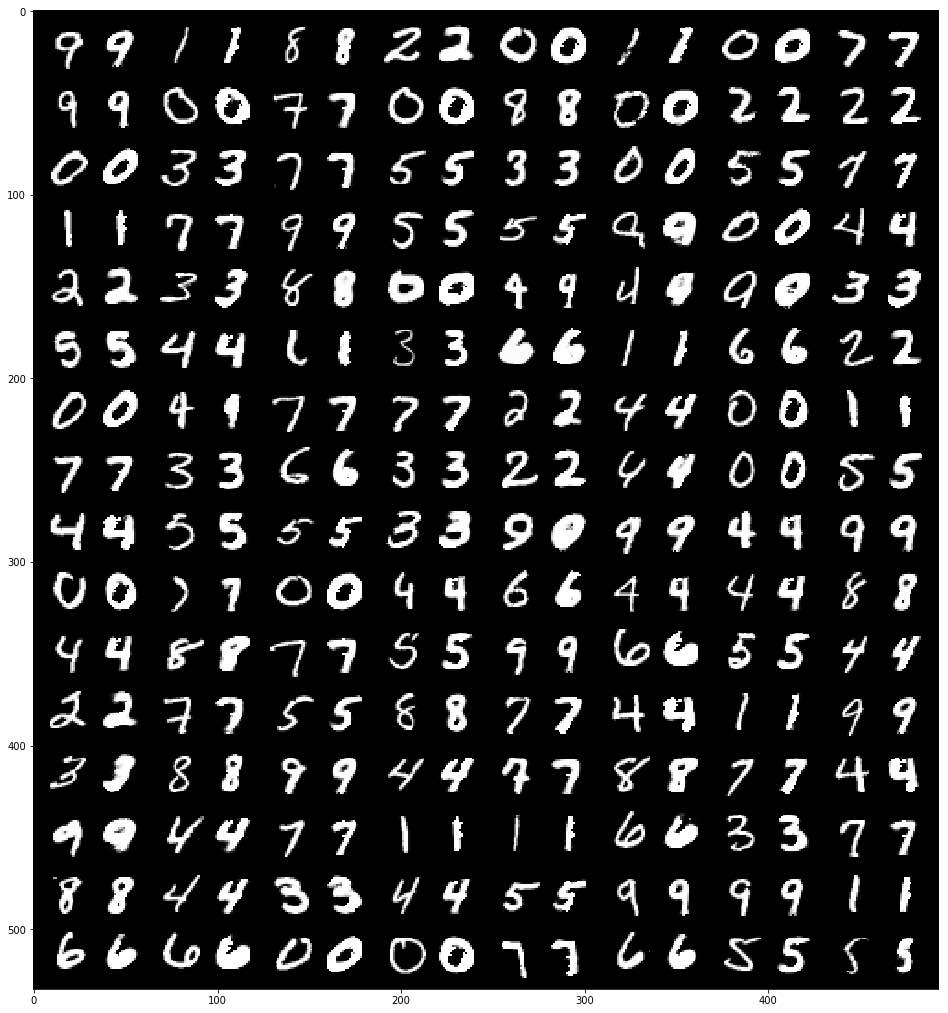 0
9 9 1 1 8 8 2 2 0 0 1 1 0 0 7 7
9 9 0 0 7 7 0 0 8 8 0 0 2 2 2 2
0 0 3 3 7 7 5 5 3 3 0 0 5 5 7 7
100
1 1 7 7 9 9 5 5 5 5 9 9 0 0 4 4
2 2 3 3 8 8 0 0 9 9 4 9 0 3 3
5 5 4 4 1 1 3 3 6 6 1 1 6 6 2 2
200
0 0 4 4 7 7 7 7 2 2 4 4 0 0 1 1
7 7 3 3 6 6 3 3 2 2 4 4 0 0 5 5
4 4 5 5 5 5 3 3 9 0 9 9 4 4 9 9
300
0 0 7 7 0 0 4 4 6 6 4 4 4 4 8 8
4 4 8 8 7 7 5 5 9 9 6 6 5 5 4 4
2 2 7 7 5 5 8 8 7 7 4 4 1 1 9 9
400
3 3 8 8 9 9 4 4 7 7 8 8 7 7 4 4
9 9 4 4 7 7 1 1 1 1 6 6 3 3 7 7
8 8 4 4 3 3 4 4 5 5 9 9 9 9 1 1
500
6 6 6 6 0 0 0 0 7 7 6 6 5 5 5 5
0 100 200 300 400